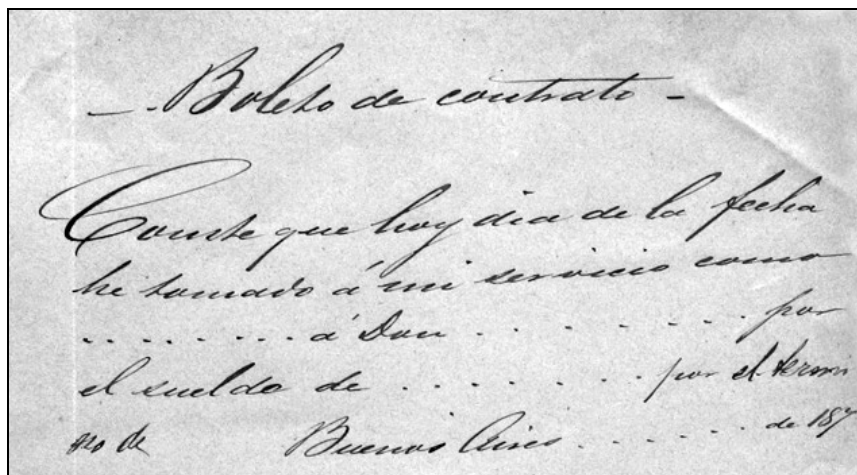 —. Boleto de contrato —
Conste que hoy dia de la fecha
he tomado á mi servicio como
. . . . . . . . á Don . . . . . . . . . por
el sueldo de . . . . . . . . por el termi
no de Buenos Aires . . . . . . de 187